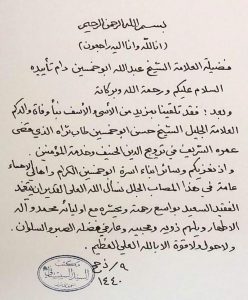 بسم الله الرحمن الرحيم
(انا لله وانا اليه راجعون)
فضيلة العلامة الشيخ عبدالله ابوخمسين دام تأييده
السلام عليكم ورحمة الله وبركاته
وبعد : فقد تلقينا بمزيد من الأسى والأسف نبأ وفاة والدكم
العلامة الجليل الشيخ حسن ابوخمسين طاب ثراه الذي قضى
عمره الشريف في ترويج الدين الحنيف وخدمة المؤمنين
واذ نعزيكم وسائر ابناء اسرة ابوخمسين الكرام واهالي الاحساء
عامة في هذا المصاب الجلل نسأل الله العلي القدير ان يتغمد
الفقيد السعيد بواسع رحمته ويحشره مع اوليائه محمد وآله
الاطهار ويلهم ذويه ومحبيه وعارفي فضله الصبر والسلوان .
ولا حول ولا قوة الا بالله العلي العظيم .
٩/ ذ ح
١٤٤٠
مكتب
السيد السيستاني